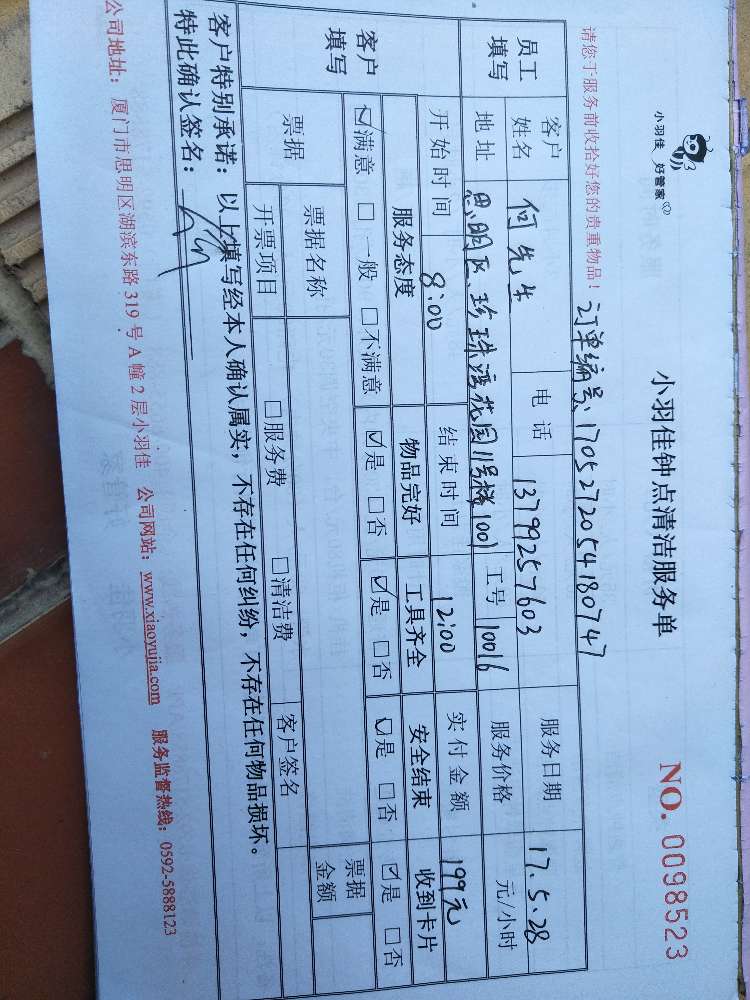 小羽佳 好管家
小羽佳钟点清洁服务单
NO. 0098523
请您于服务前收拾好您的贵重物品！
订单编号、1705272054180747
员工填写
客户姓名 何先生 电话 13799257603 服务日期 17.5.28
地址 思明区、珍珠湾花园11号楼1001 工号 10016 服务价格 元/小时
开始时间 8:00 结束时间 12:00 实付金额 199元
客户填写
服务态度 物品完好 工具齐全 安全结束 收到卡片
☑满意 □一般 □不满意 ☑是 □否 ☑是 □否 ☑是 □否 ☑是 □否
票据
票据名称 票据金额
开票项目 □服务费 □清洁费 客户签名
客户特别承诺：以上填写经本人确认属实，不存在任何纠纷，不存在任何物品损坏。
特此确认签名：
公司地址：厦门市思明区湖滨东路 319 号 A 幢 2 层小羽佳 公司网站：www.xiaoyujia.com 服务监督热线：0592-5888123